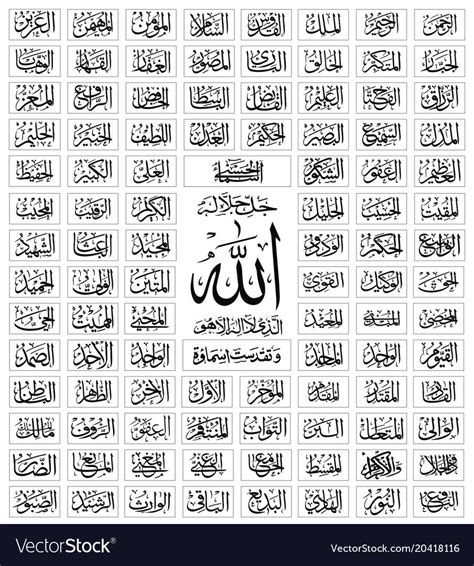 الرحمن الرحيم الملك القدوس السلام المؤمن المهيمن العزيز
الجبار المتكبر الخالق البارئ المصور الغفار القهار الوهاب
الرزاق الفتاح العليم القابض الباسط الخافض الرافع المعز
المذل السميع البصير الحكم العدل اللطيف الخبير الحليم
العظيم الغفور الشكور العلي الكبير الحفيظ
المقيت الحسيب الجليل جل جلاله الكريم الرقيب المجيب
الواسع الحكيم الودود المجيد الباعث الشهيد
الحق الوكيل القوي الله المتين الولي الحميد
المحصي المبدئ المعيد الذي لا اله الا هو المحيي المميت الحي
القيوم الواجد الماجد وتقدست اسماؤه الواحد الاحد الصمد
القادر المقتدر المقدم المؤخر الاول الآخر الظاهر الباطن
الوالي المتعال البر التواب المنتقم العفو الرؤف مالك الملك
ذوالجلال والاكرام المقسط الجامع الغني المغني المانع الضار
النافع النور الهادي البديع الباقي الوارث الرشيد الصبور
VectorStock®
VectorStock.com/20418116